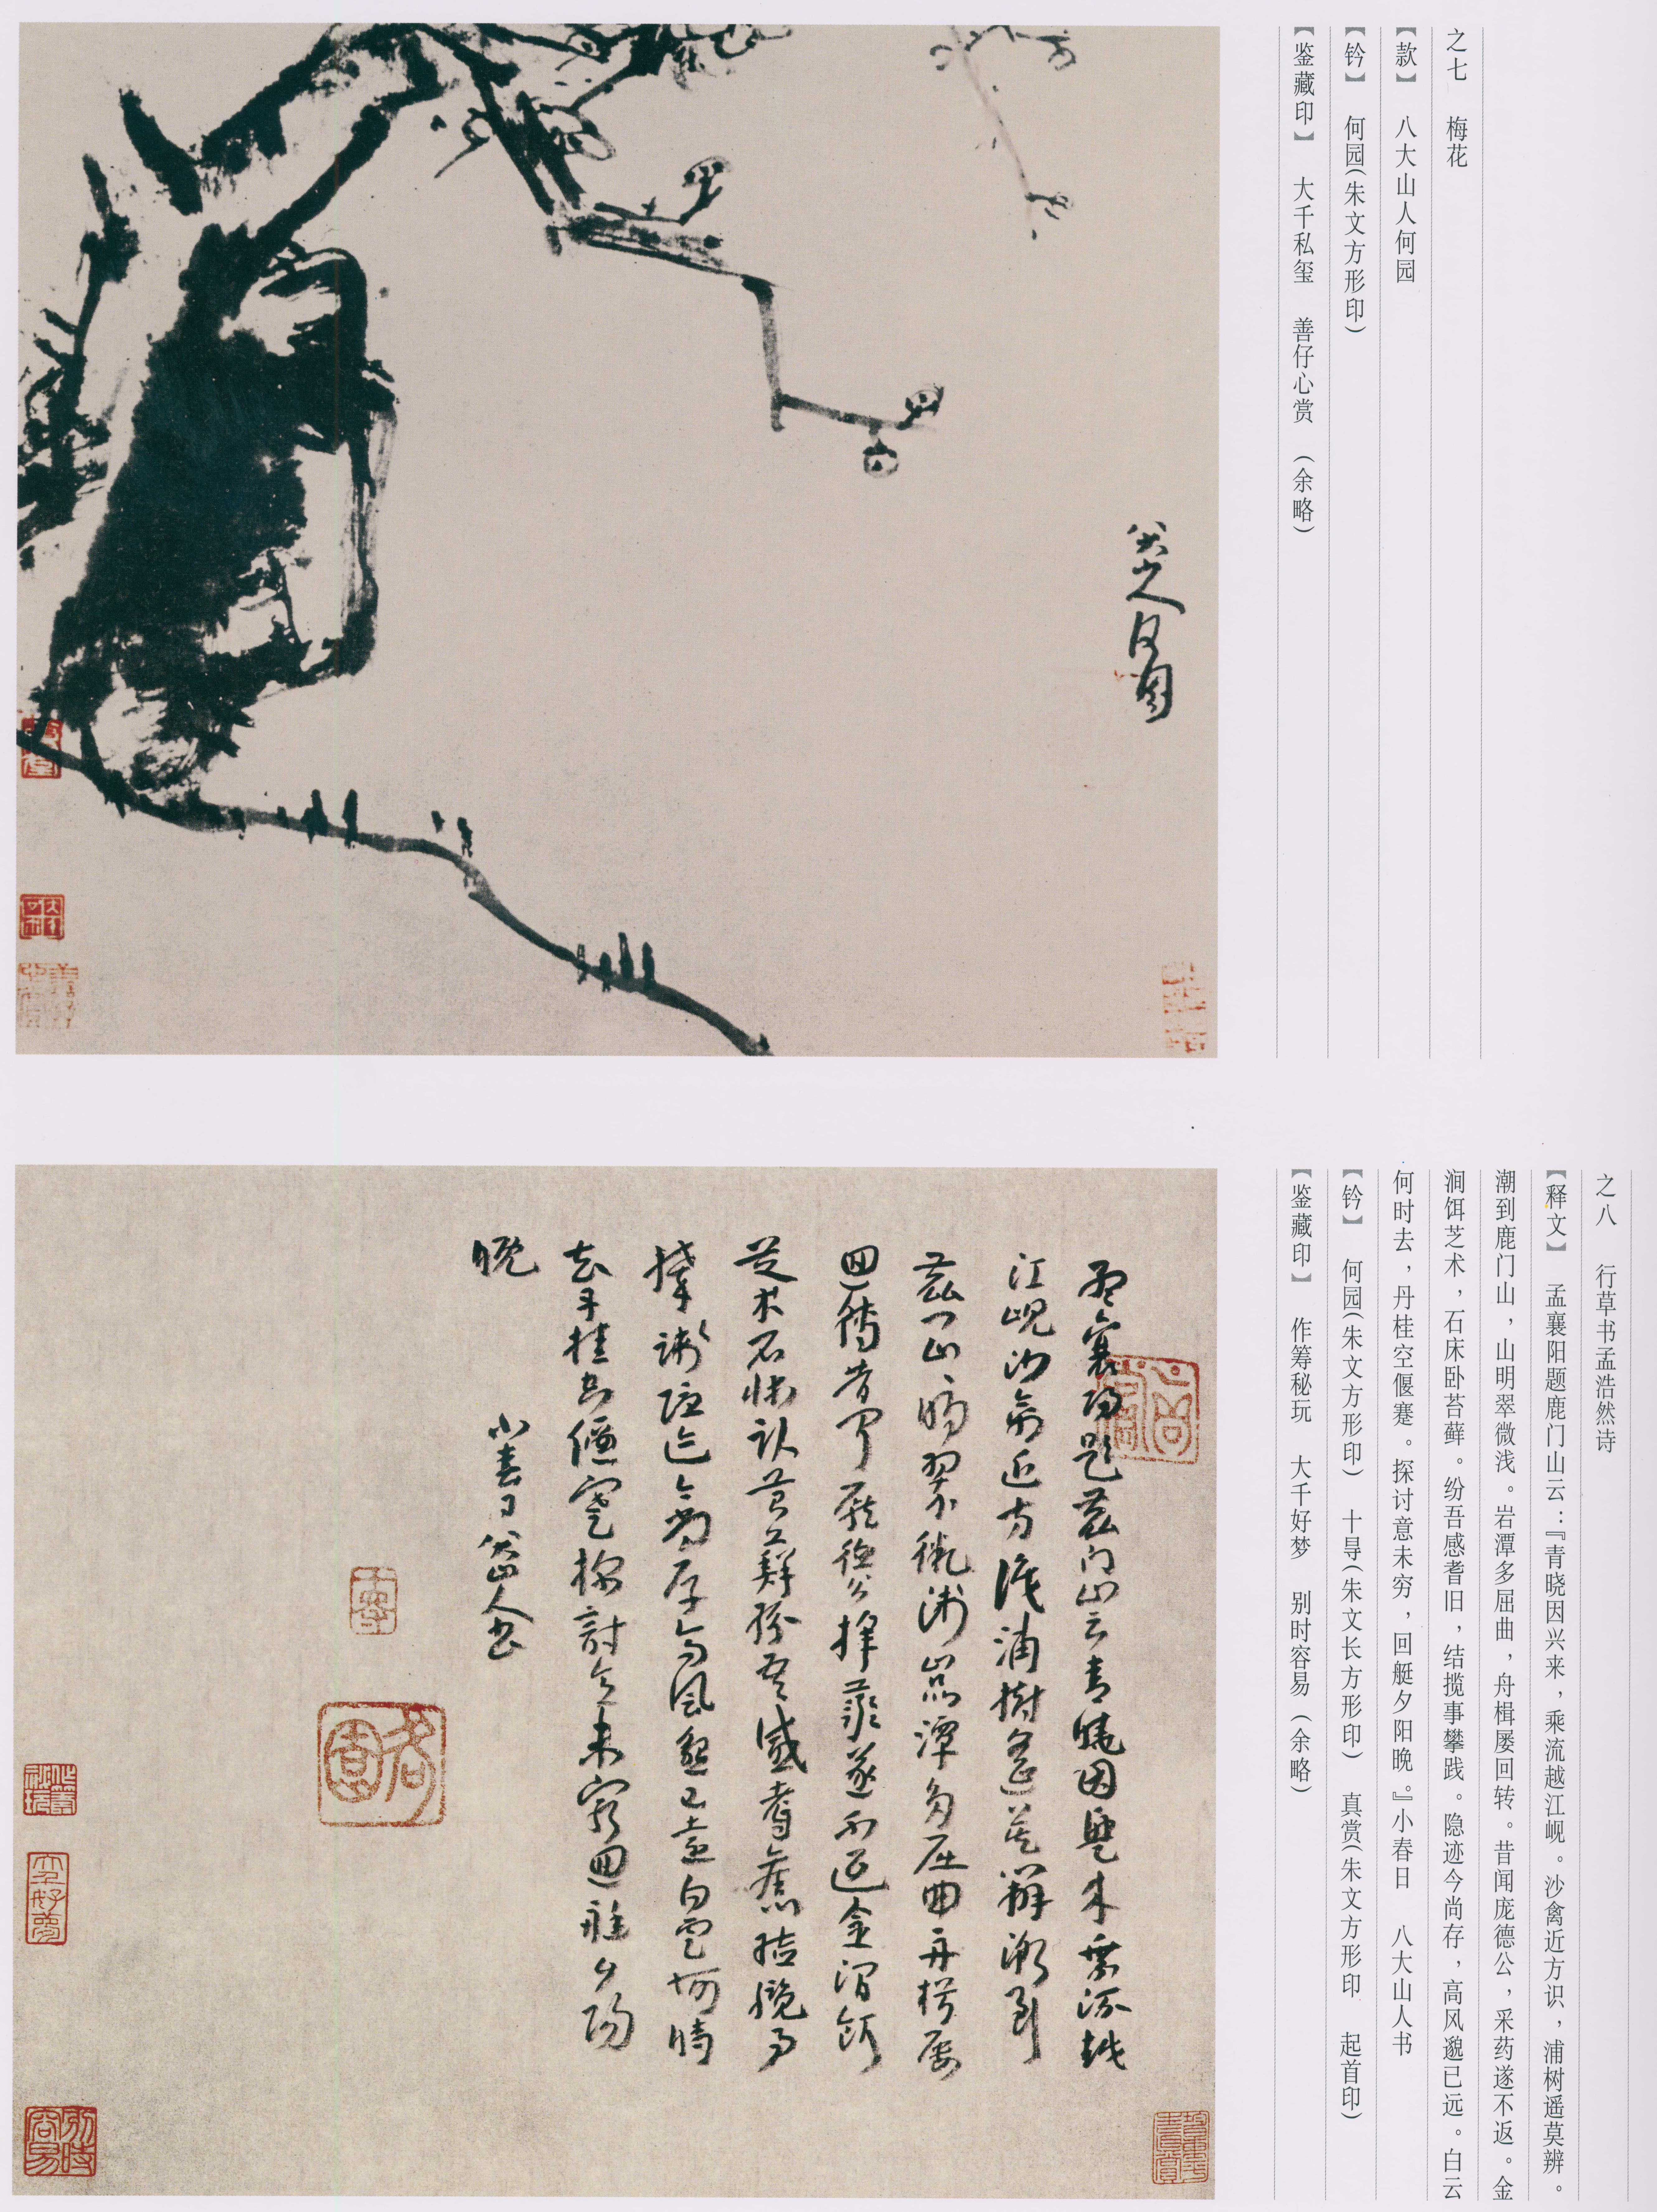 之七 梅花
【款】 八大山人何园
【钤】 何园(朱文方形印)
【鉴藏印】 大千私玺 善仔心赏 (余略)
八大山人何园
之八 行草书孟浩然诗
【释文】 孟襄阳题鹿门山云：『青晓因兴来，乘流越江岘。沙禽近方识，浦树遥莫辨。
潮到鹿门山，山明翠微浅。岩潭多屈曲，舟楫屡回转。昔闻庞德公，采药遂不返。金
涧饵芝术，石床卧苔藓。纷吾感耆旧，结揽事攀践。隐迹今尚存，高风邈已远。白云
何时去，丹桂空偃蹇。探讨意未穷，回艇夕阳晚。』小春日 八大山人书
【钤】 何园(朱文方形印) 十㝵(朱文长方形印) 真赏(朱文方形印 起首印)
【鉴藏印】 作筹秘玩 大千好梦 别时容易(余略)
孟襄陽題鹿门山云青曉因興来乘流越
江峴沙禽近方識浦樹遙莫辨潮到
鹿门山山明翠微淺嵒潭多屈曲舟楫屡
回轉昔聞龐德公採藥遂不返金澗餌
芝术石床卧苔蘚紛吾感耆舊結攬事
攀踐隐迹今尚存高風邈已遠白雲何時
去丹桂空偃蹇探討意未窮回艇夕陽
晚
小春日八大山人書